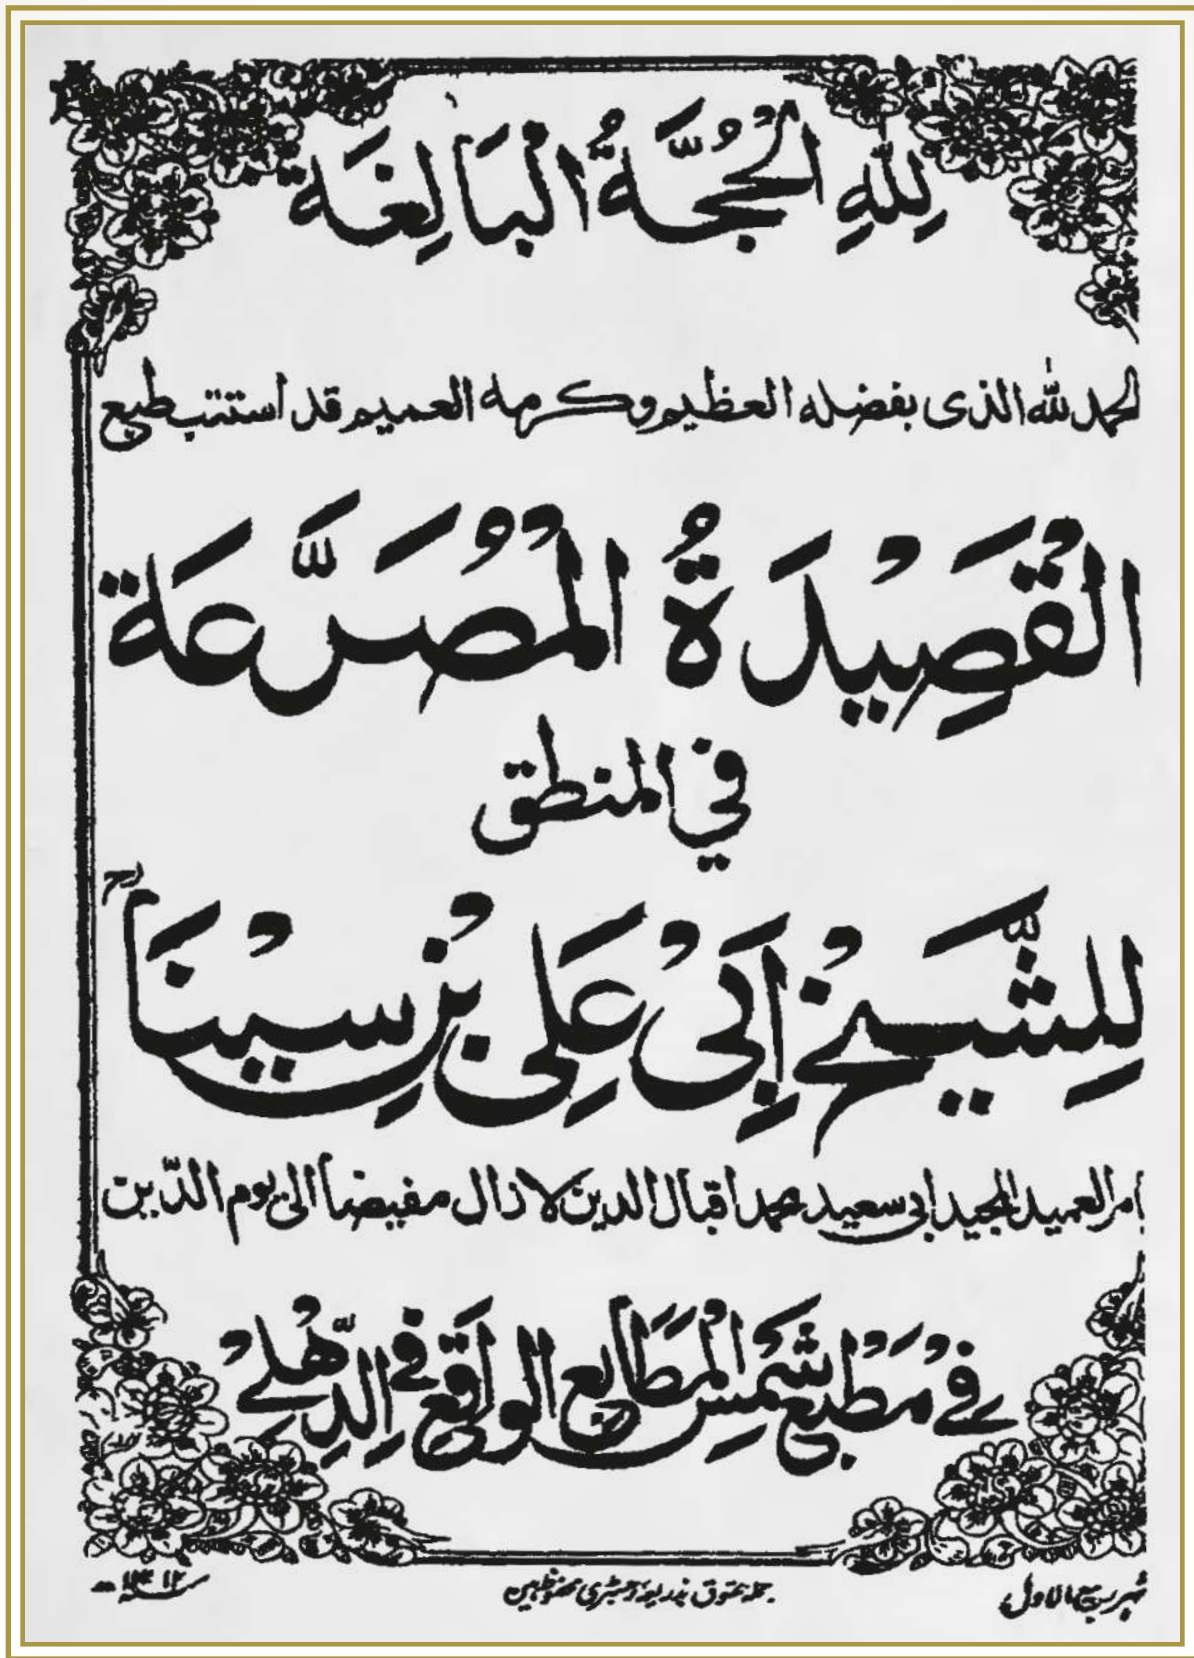 لِلّٰهِ الْحُجَّةُ الْبَالِغَة
الحمد لله الذى بفضله العظيم وكرمه العميم قد استتب طبع
الْقَصِيْدَةُ الْمُصَرَّعَة
في المنطق
لِلشَّيْخ اَبِىْ عَلِى بْنِ سِيْنَا رح
بامر العميد المجيد ابى سعيد محمد اقبال الدين لازال مفيضا الى يوم الدّين
فِىْ مَطْبَع شَمْسِ الْمَطَابِع الواقِع فِى الدِّهْلِىْ
شهر ربيع الاول
جملہ حقوق بذریعہ رجسٹری محفوظ ہیں